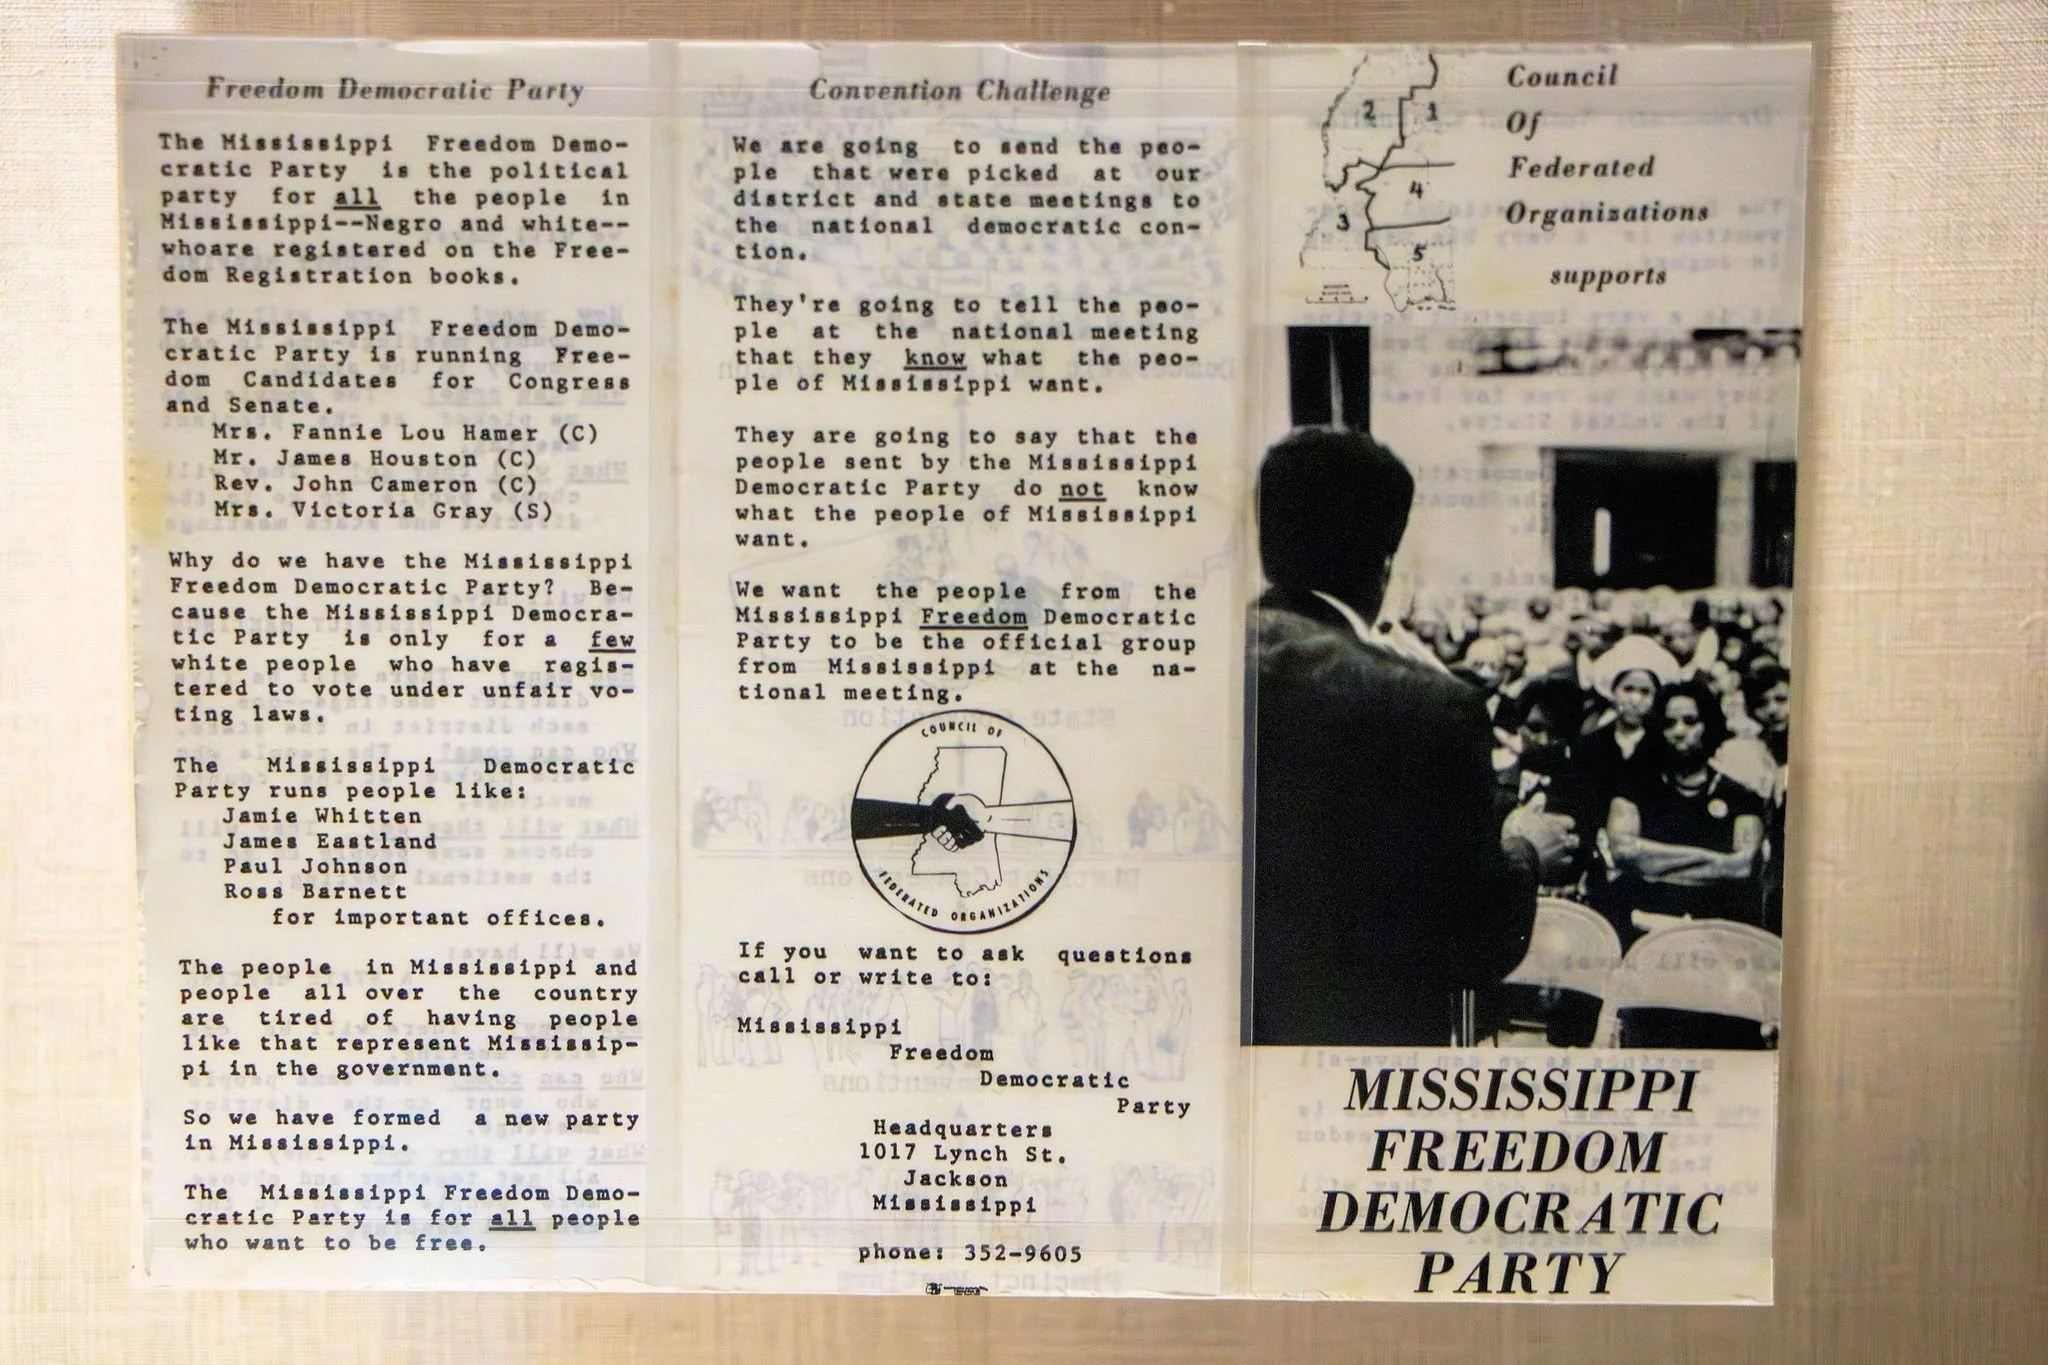 Freedom Democratic Party
The Mississippi Freedom Demo-
cratic Party is the political
party for all the people in
Mississippi--Negro and white--
whoare registered on the Free-
dom Registration books.
The Mississippi Freedom Demo-
cratic Party is running Free-
dom Candidates for Congress
and Senate.
Mrs. Fannie Lou Hamer (C)
Mr. James Houston (C)
Rev. John Cameron (C)
Mrs. Victoria Gray (S)
Why do we have the Mississippi
Freedom Democratic Party? Be-
cause the Mississippi Democra-
tic Party is only for a few
white people who have regis-
tered to vote under unfair vo-
ting laws.
The Mississippi Democratic
Party runs people like:
Jamie Whitten
James Eastland
Paul Johnson
Ross Barnett
for important offices.
The people in Mississippi and
people all over the country
are tired of having people
like that represent Mississip-
pi in the government.
So we have formed a new party
in Mississippi.
The Mississippi Freedom Demo-
cratic Party is for all people
who want to be free.
Convention Challenge
We are going to send the peo-
ple that were picked at our
district and state meetings to
the national democratic con-
tion.
They're going to tell the peo-
ple at the national meeting
that they know what the peo-
ple of Mississippi want.
They are going to say that the
people sent by the Mississippi
Democratic Party do not know
what the people of Mississippi
want.
We want the people from the
Mississippi Freedom Democratic
Party to be the official group
from Mississippi at the na-
tional meeting.
COUNCIL OF
FEDERATED ORGANIZATIONS
If you want to ask questions
call or write to:
Mississippi
Freedom
Democratic
Party
Headquarters
1017 Lynch St.
Jackson
Mississippi
phone: 352-9605
2 1
4
3
5
Council
Of
Federated
Organizations
supports
MISSISSIPPI
FREEDOM
DEMOCRATIC
PARTY